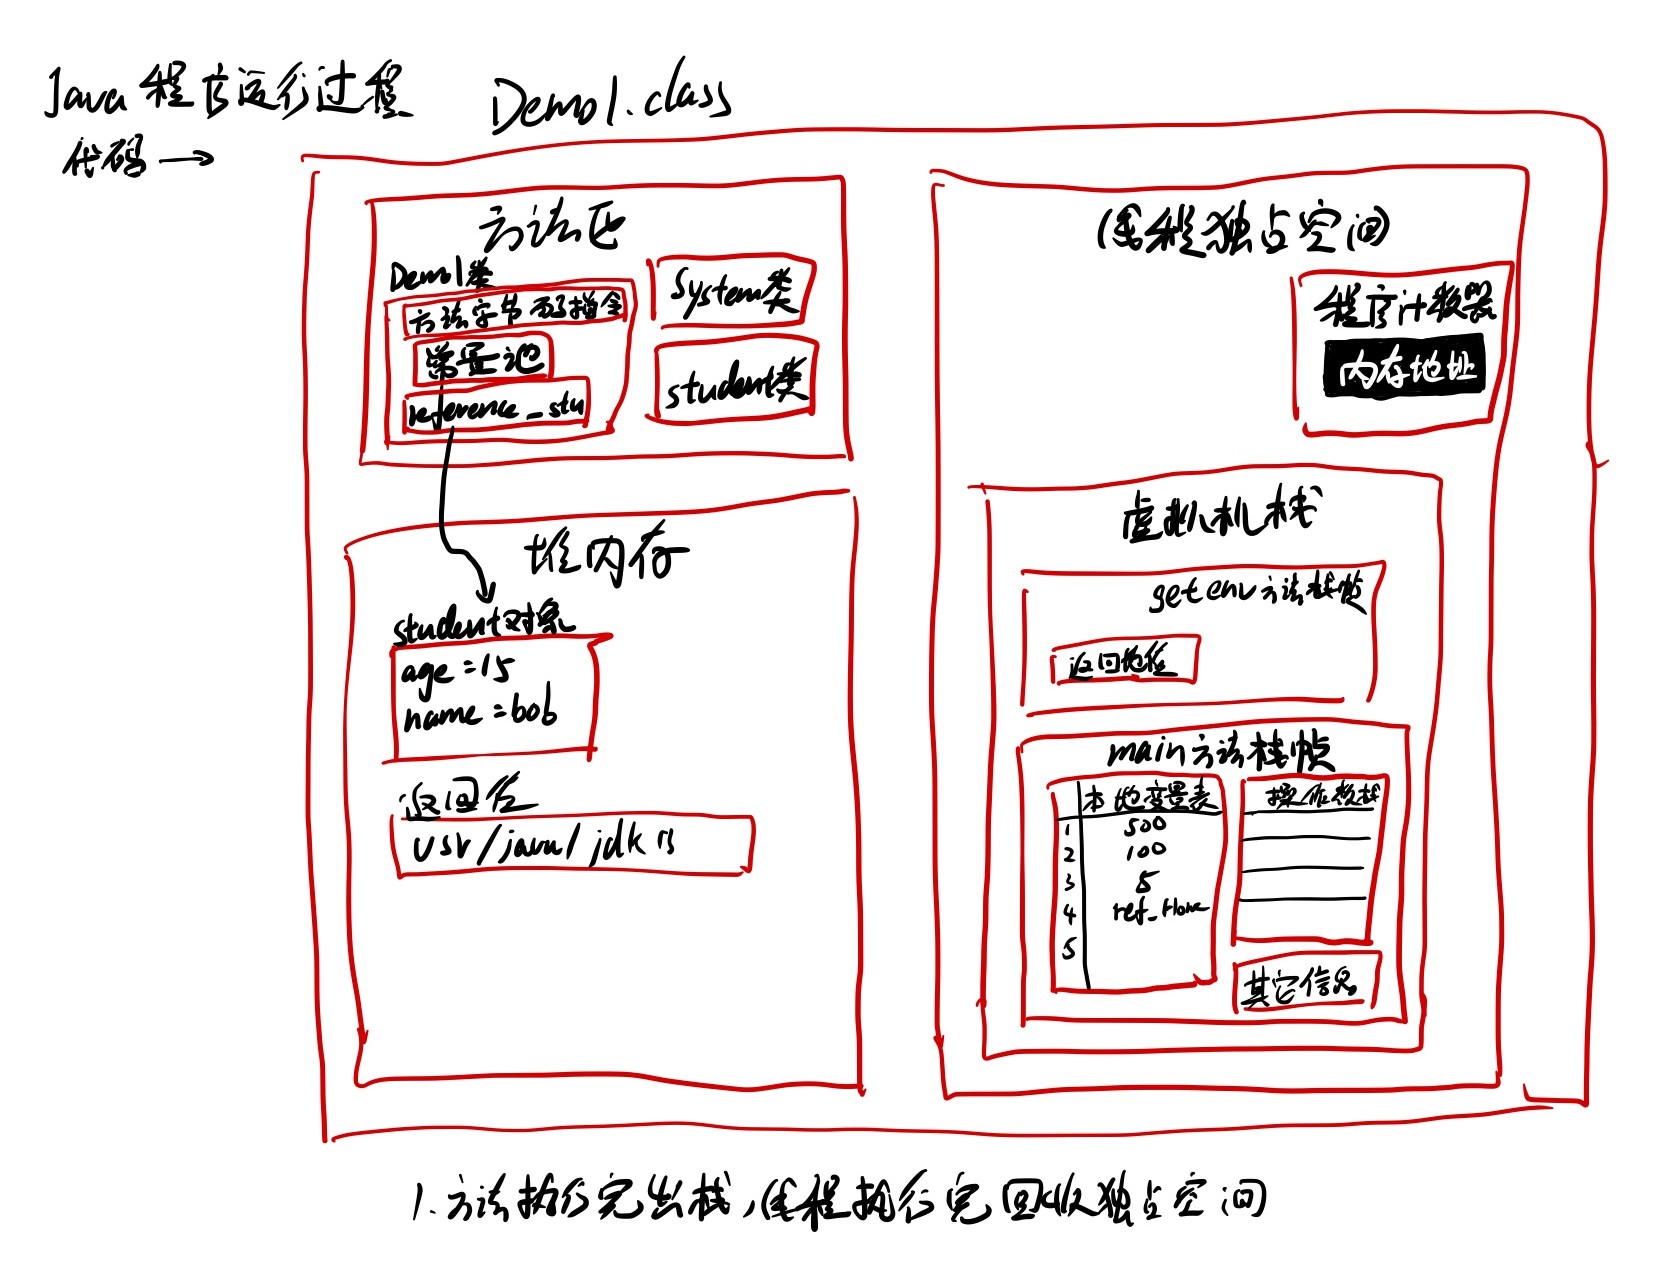 Java 程序运行过程
Demo1.class
代码 →
方法区
Demo1类
方法字节码指令
常量池
reference_stu
System类
student类
堆内存
student对象
age=15
name=bob
返回值
usr/java/jdk
线程独占空间
程序计数器
内存地址
虚拟机栈
getenv方法栈帧
返回地值
main方法栈帧
本地变量表
1 500
2 100
3 5
4 ref_Home
5
操作数栈
其它信息
1.方法执行完出栈,线程执行完回收独占空间